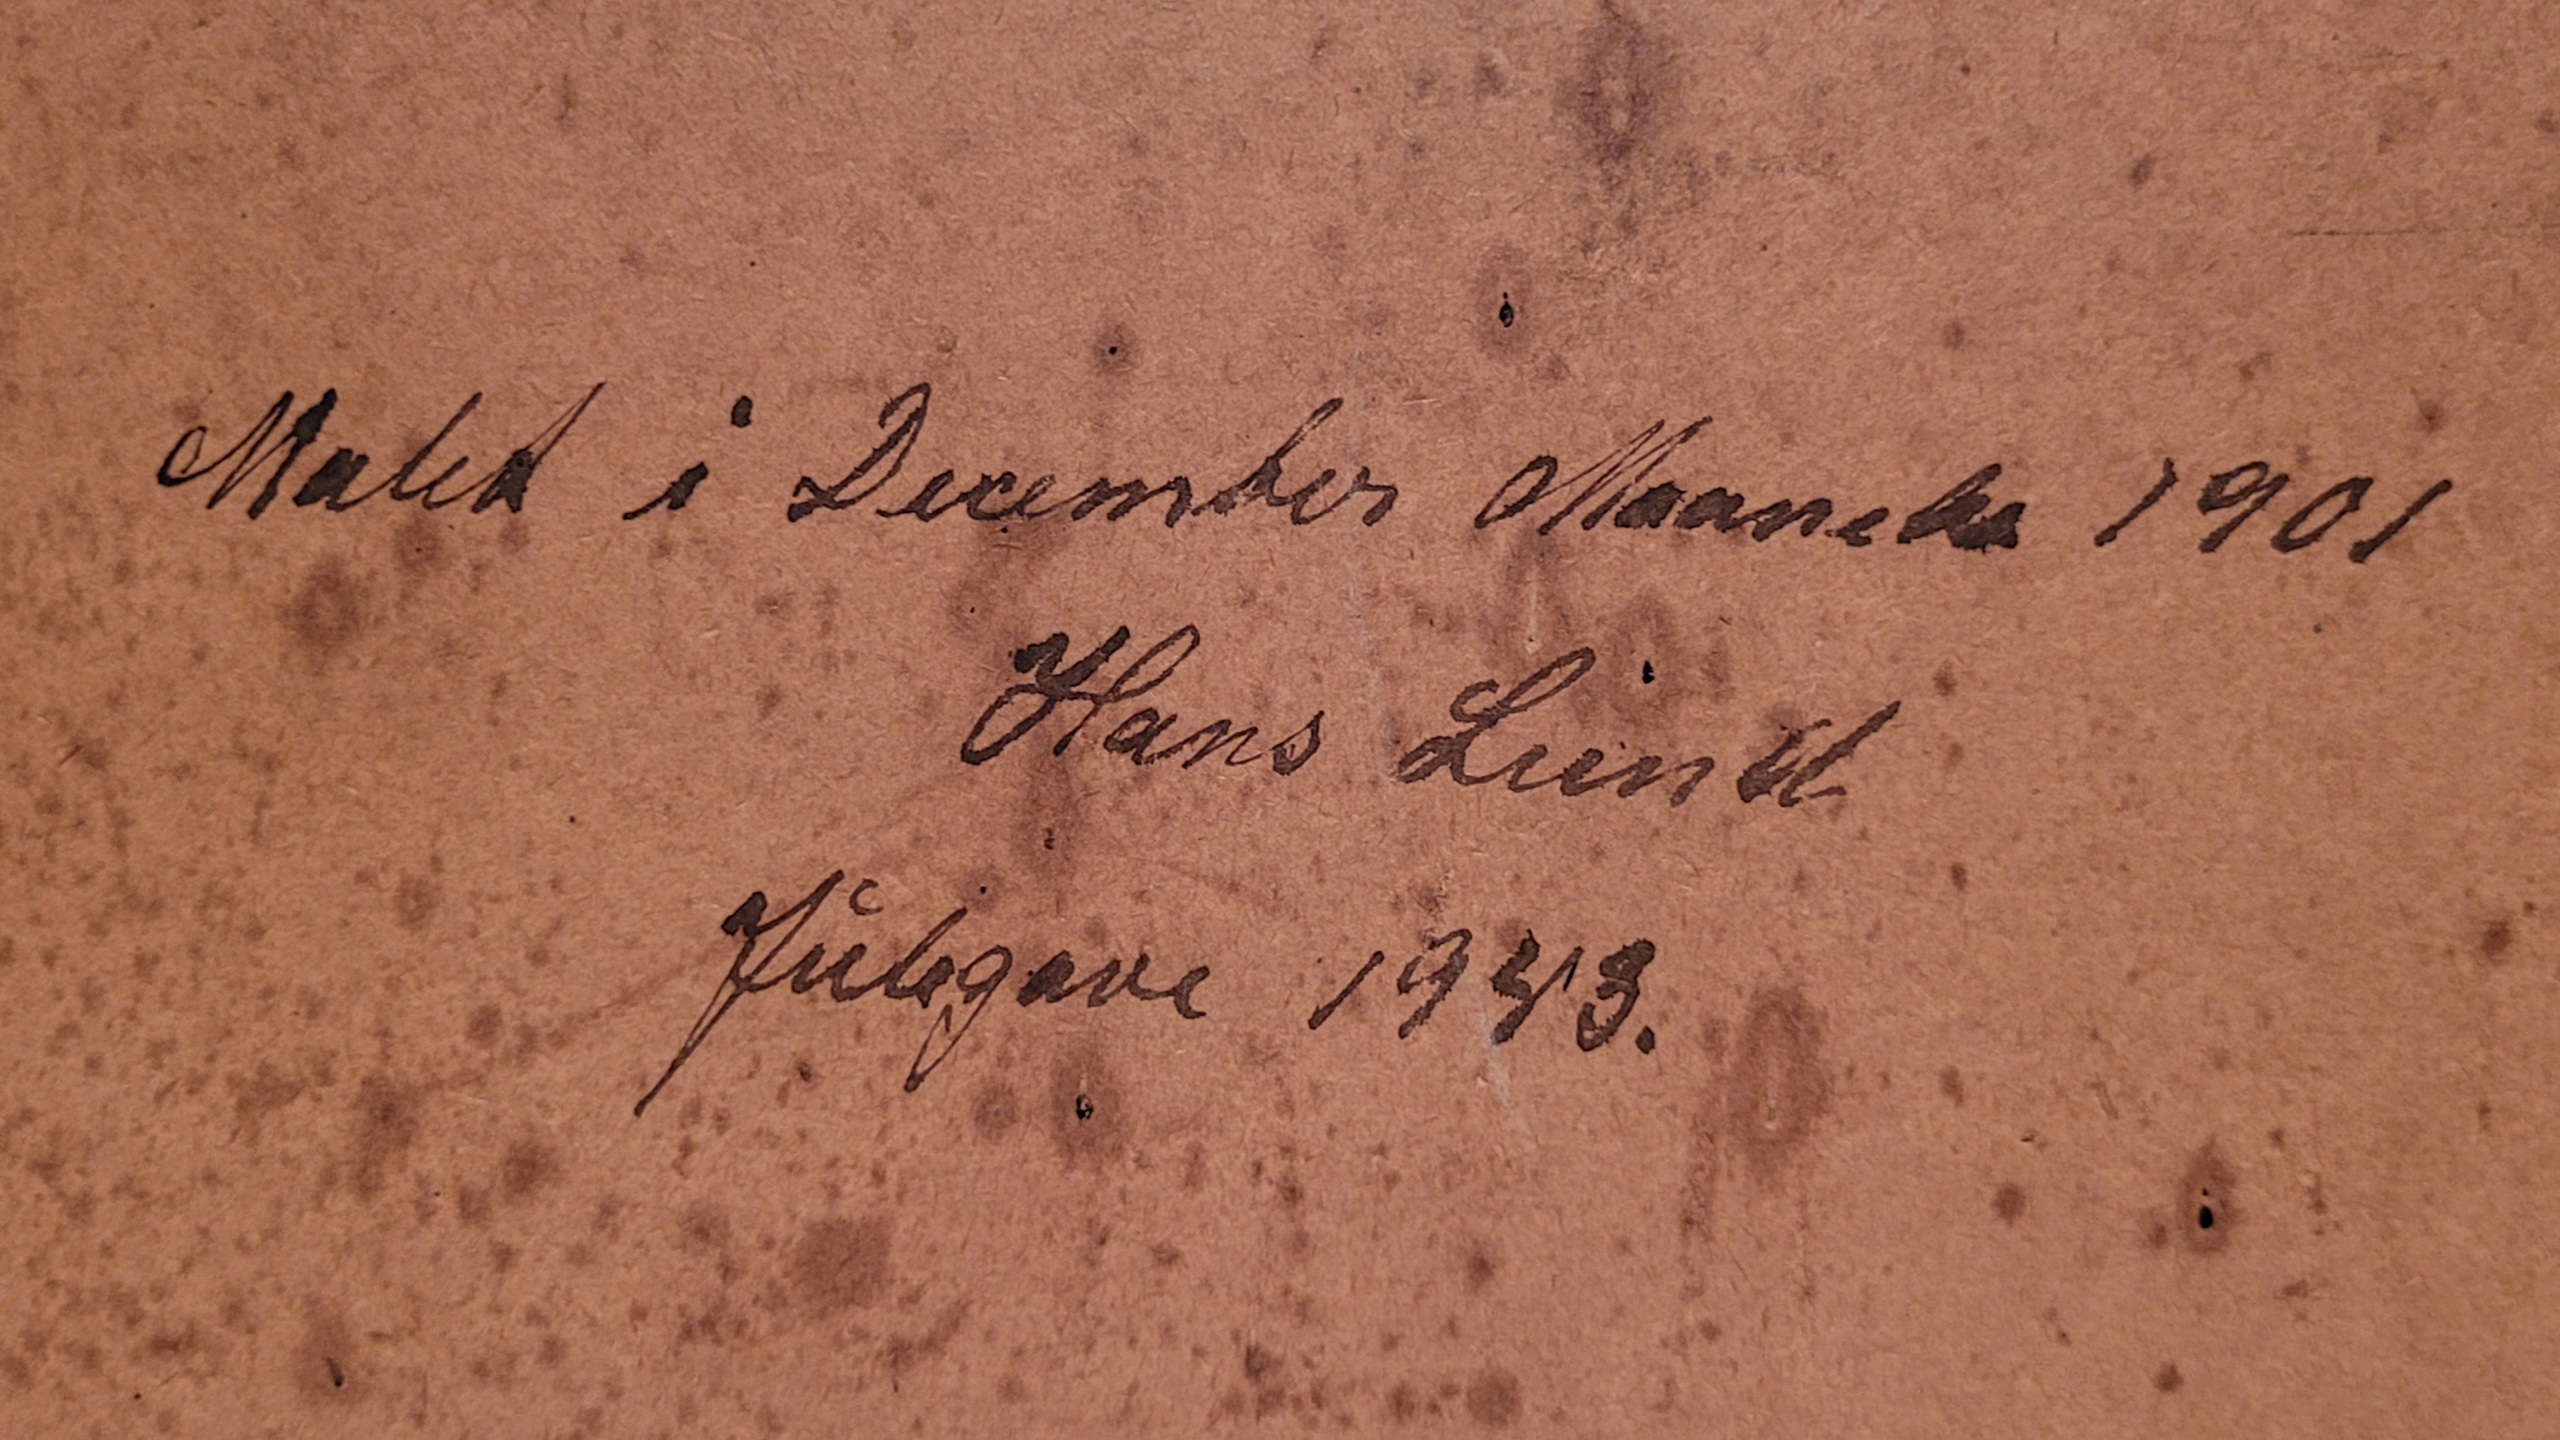 Malet i December Maaned 1901
Hans Lund
Julegave 1943.